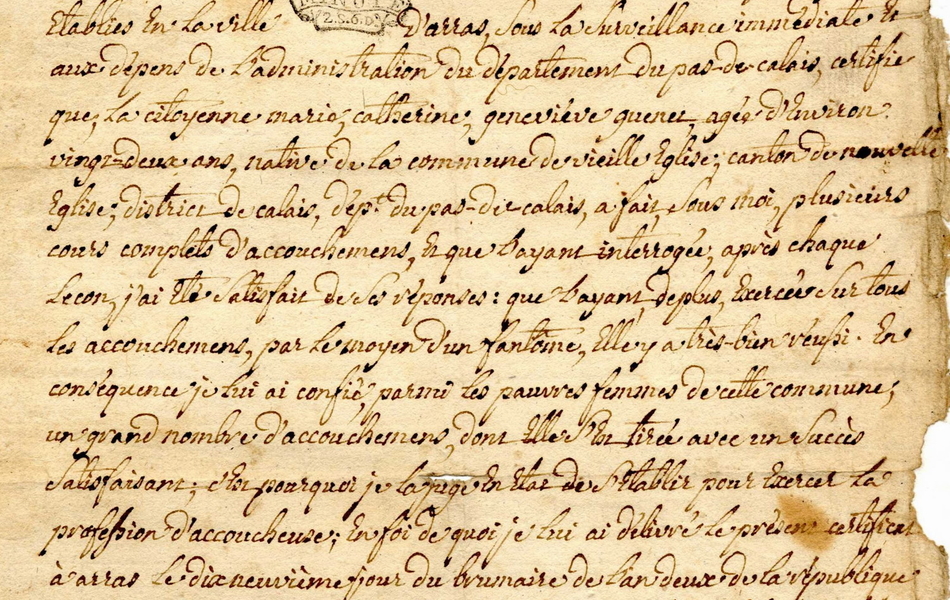 Etablies En la ville d'arras, Sous la Surveillance immédiate Et
aux dépens de L'administration du département du pas-de-calais, certifie
que, La citoyenne marie, catherine, geneviève quenet, agée d'Environ
vingt-deux ans, native de la commune de vieille Eglise, canton de nouvelle
Eglise, district de calais, dép.t du pas-de-calais, a fait Sous moi, plusieurs
cours complets d'accouchemens, Et que L'ayant interrogée, après chaque
Lecon, j'ai Eté Satisfait de Ses réponses: que L'ayant, deplus, Exercée Sur tous
les accouchemens, par Le moyen d'un fantôme, Elle y a très-bien réussi. En
conséquence je lui ai confié, parmi les pauvres femmes de cette commune,
un grand nombre d'accouchemens, dont Elle S'Est tirée avec un Succès
Satisfaisant; c'Est pourquoi je la juge En Etat de S'Etablir pour Exercer la
profession d'accoucheuse; En foi de quoi je lui ai délivré le présent certificat
à arras Le dix neuvième jour du brumaire de L'an deux de la république
MINUTE
(2.S.6.D.)